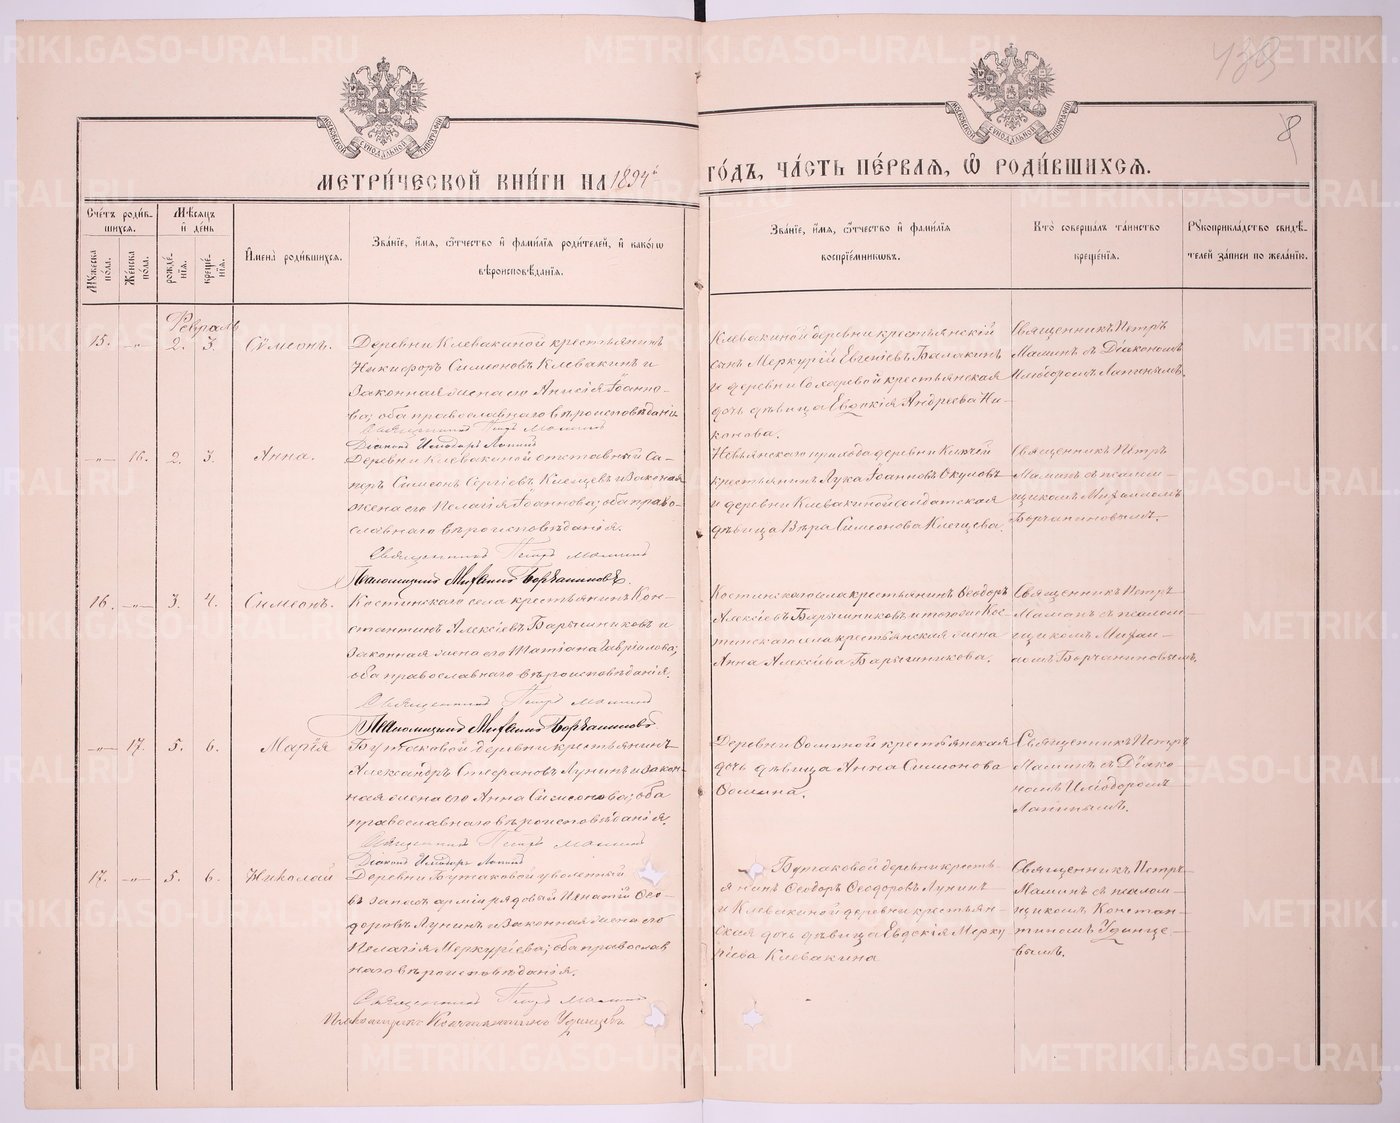 METRIKI.GASO-URAL.RU
439
8
МОСКОВСКОЙ СѴНОДАЛЬНОЙ ТИПОГРАФІИ
МЕТРИ́ЧЕСКОЙ КНИ́ГИ НА 1894й ГО́ДЪ, ЧА́СТЬ ПЕ́РВАЯ, Ѽ РОДИ́ВШИХСЯ.
Сче́тъ роди́вшихся.
Му́жеска по́ла.
Же́нска по́ла.
Мѣ́сяцъ и҆ день
рожде́нїя.
креще́нїя.
И҆мена̀ роди́вшихся.
Зва́нїе, и҆́мя, ѻ҆́тчество и҆ фами́лїя роди́телей, и҆ како́гѡ вѣроисповѣ́данїя.
Зва́нїе, и҆́мя, ѻ҆́тчество и҆ фами́лїя воспрїе́мникѡвъ.
Кто̀ соверша́лъ та́инство креще́нїя.
Рꙋкоприкла́дство свидѣ́телей за́писи по жела́нїю.
Февраль
15. -„- 2. 3. Сѵмеонъ.
Деревни Клевакиной крестьянинъ
Никифоръ Симеоновъ Клевакинъ и
законная жена его Анисія Іоанно-
ва; оба православнаго вѣроисповѣданія.
Священникъ Петръ Маминъ
Діаконъ Иліодоръ Лапинъ
Клевакиной деревни крестьянскій
сынъ Меркурій Евгеніевъ Балакинъ
и деревни Сохаревой крестьянская
дочь дѣвица Евдокія Андреева Ни-
конова.
Священникъ Петръ
Маминъ съ Діакономъ
Иліодоромъ Лапинымъ.
-„- 16. 2. 3. Анна.
Деревни Клевакиной отставный Са-
перъ Симеонъ Сергіевъ Клещевъ и законая
жена его Пелагія Іоаннова; оба право-
славнаго вѣроисповѣданія.
Священникъ Петръ Маминъ
Псаломщикъ Михаилъ Борчаниновъ.
Невьянскаго прихода деревни Ключей
крестьянинъ Лука Іоанновъ Окуловъ
и деревни Клевакиной солдатская
дѣвица Вѣра Симеонова Клещева.
Священникъ Петръ
Маминъ съ псалом-
щикомъ Михаиломъ
Борчаниновымъ.
16. -„- 3. 4. Симеонъ.
Костинскаго села крестьянинъ Кон-
стантинъ Алексіевъ Барышниковъ и
законная жена его Татіана Гаврилова;
оба православнаго вѣроисповѣданія.
Священникъ Петръ Маминъ
Псаломщикъ Михаилъ Борчаниновъ
Костинскаго села крестьянинъ Ѳеодоръ
Алексіевъ Барышниковъ и того же Кос-
тинскаго села крестьянская жена
Анна Алексіева Барышникова.
Священникъ Петръ
Маминъ съ псалом-
щикомъ Михаи-
ломъ Борчаниновымъ.
-„- 17. 5. 6. Марія
Бутаковой деревни крестьянинъ
Александръ Стефановъ Лунинъ и закон-
ная жена его Анна Симеонова; оба
православнаго вѣроисповѣданія.
Священникъ Петръ Маминъ
Діаконъ Иліодоръ Лапинъ
Деревни Ѳоминой крестьянская
дочь дѣвица Анна Симеонова
Ѳомина.
Священникъ Петръ
Маминъ съ Діако-
номъ Иліодоромъ
Лапинымъ.
17. -„- 5. 6. Николай
Деревни Бутаковой уволенный
въ запасъ арміи рядовый Игнатій Ѳео-
доровъ Лунинъ и законная жена его
Пелагія Меркуріева; оба православ
наго вѣроисповѣданія.
Священникъ Петръ Маминъ
Псаломщикъ Константинъ Удинцевъ.
Бутаковой деревни кресть-
янинъ Ѳеодоръ Ѳеодоровъ Лунинъ
и Клевакиной деревни крестьян-
ская дочь дѣвица Евдокія Мерку
ріева Клевакина
Священникъ Петръ
Маминъ съ псалом-
щикомъ Констан-
тиномъ Удинце-
вымъ.